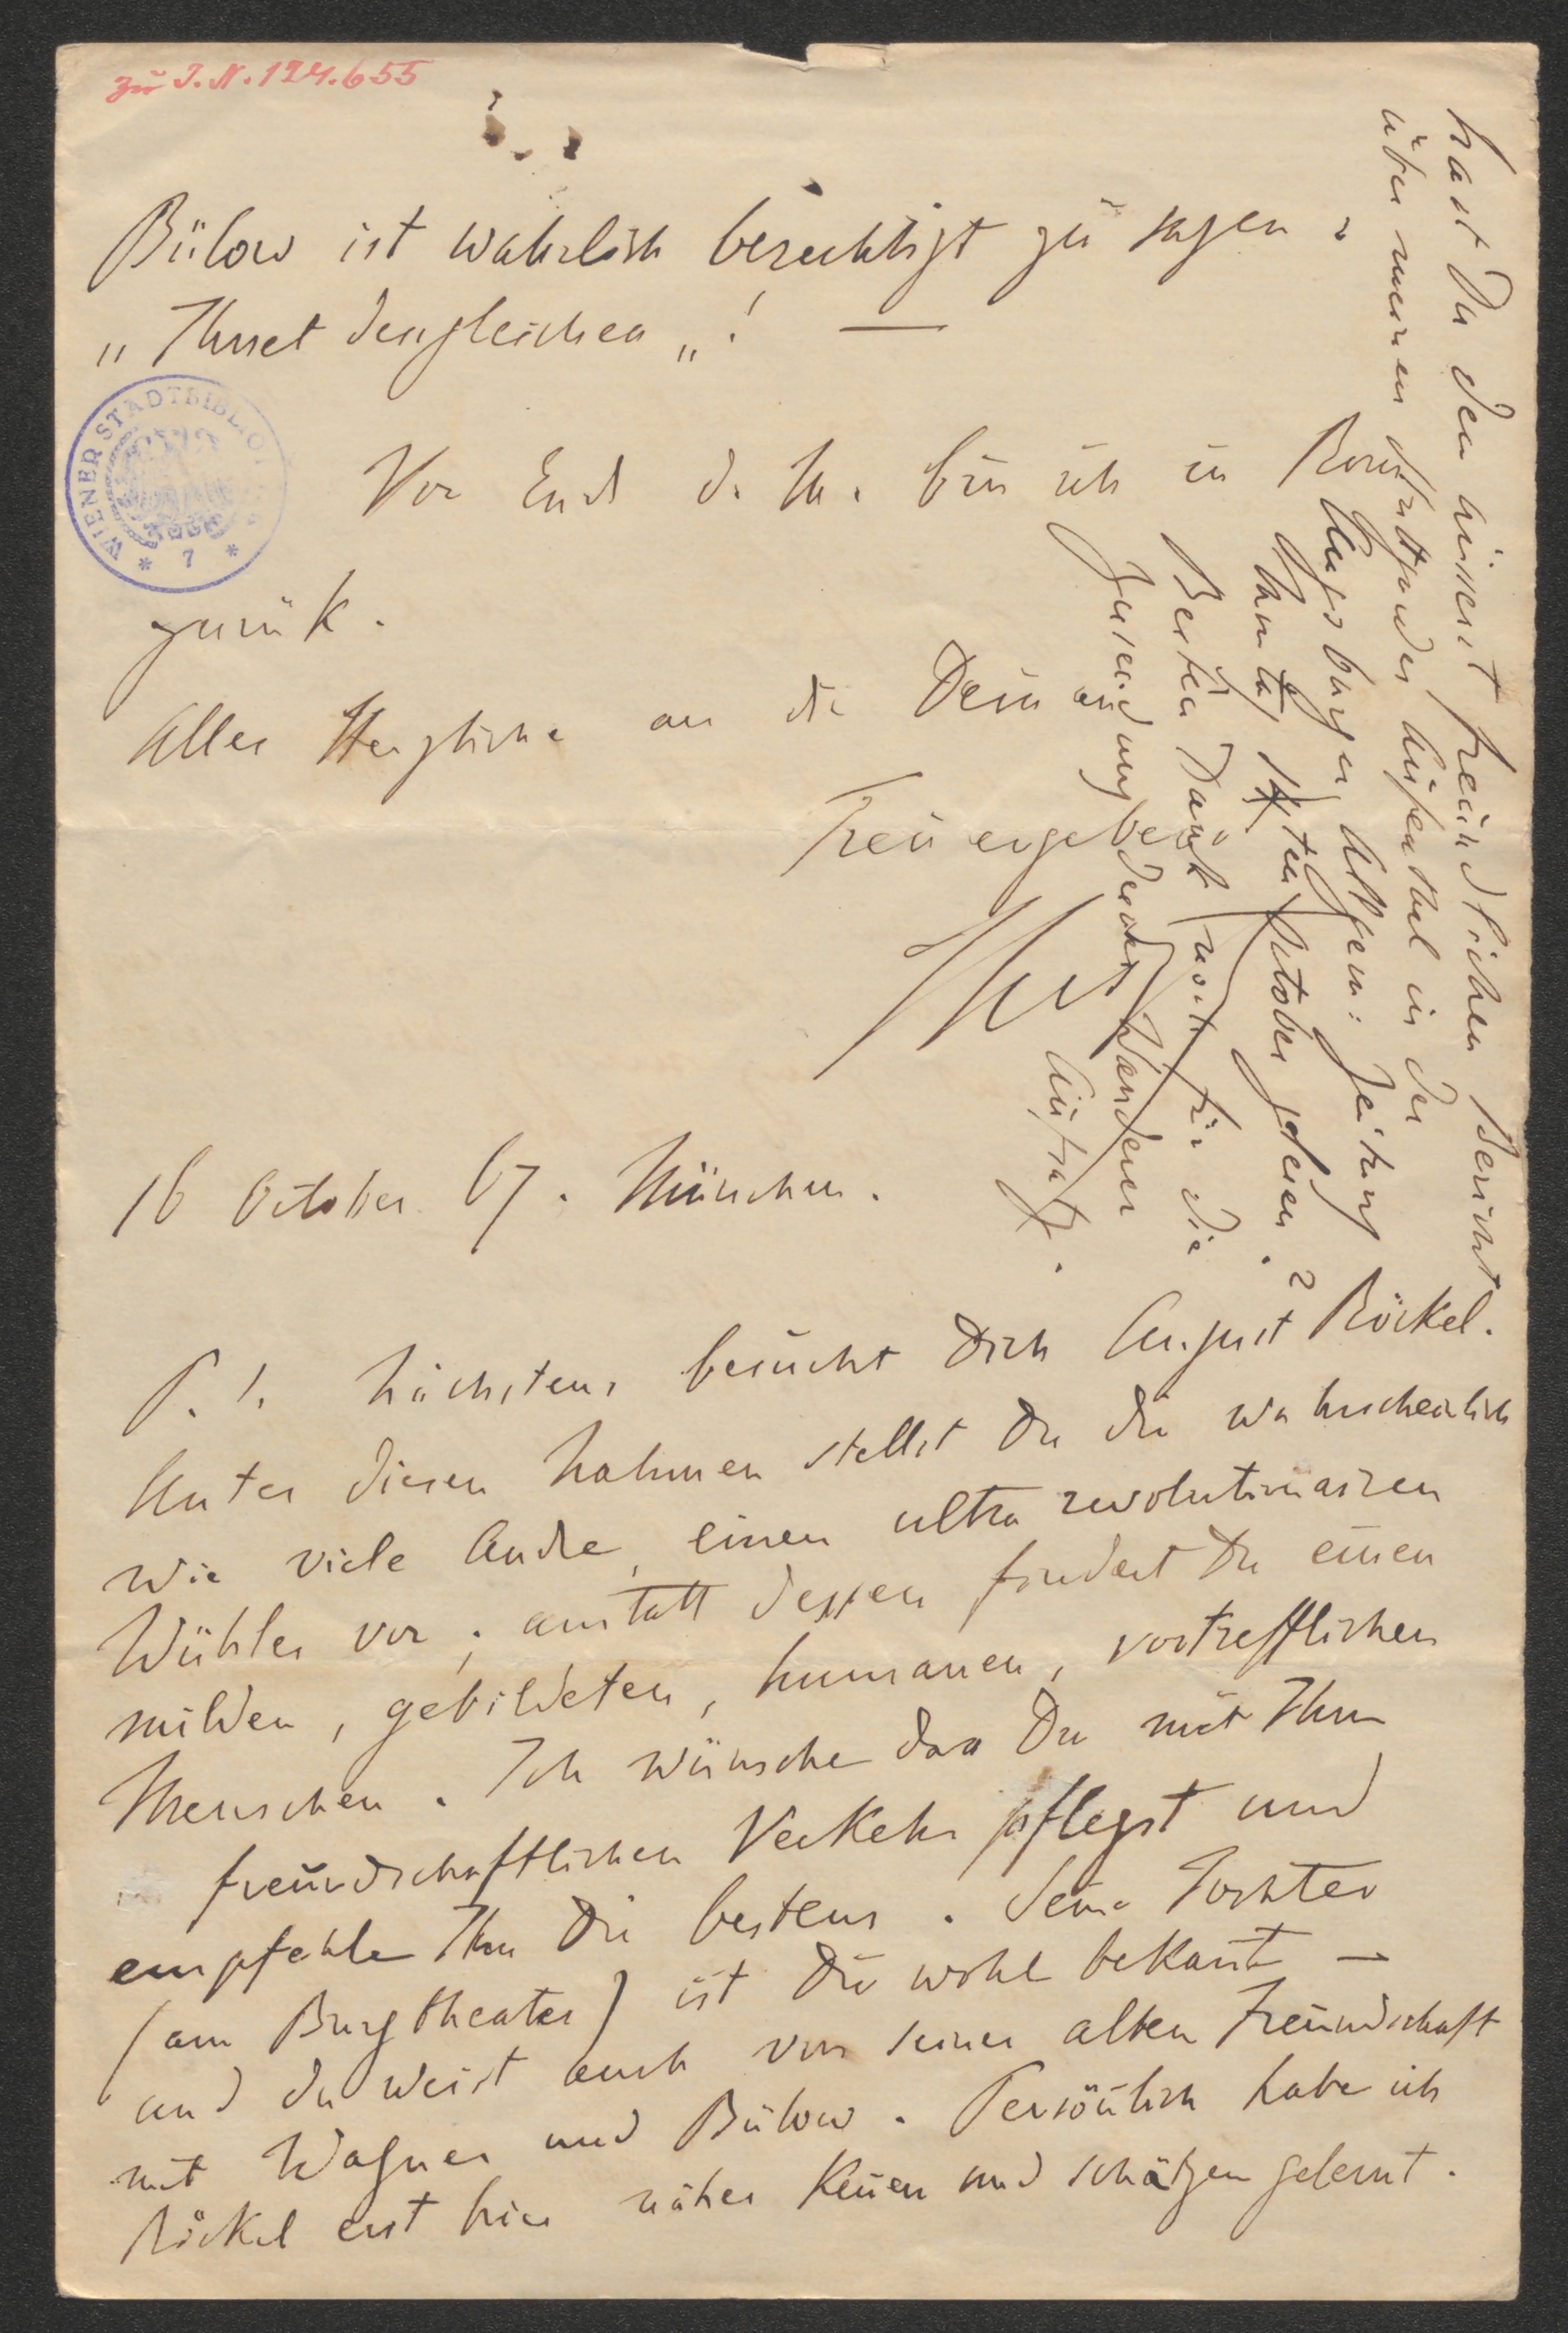 zu I.N. 124.655
Bülow ist wahrlich berechtigt zu sagen:
„Thuet dergleichen„! —
WIENER STADTBIBLIO
* 7 *
Vor Ende d. M. bin ich in Rom
zurük.
Alles Herzliche an die Deinen
Treu ergeben
16 October 67. München.
P.S. Nächstens besucht Dich August Röckel.
Unter diesen Nahmen stellst Du dir wahrscheinlich
wie viele Andre, einen ultra revolutionairen
Wühler vor; anstatt dessen findest Du einen
milden, gebildeten, humanen, vortrefflichen
Menschen. Ich wünsche dass Du mit Ihm
freundschaftlichen Verkehr pflegst und
empfehle Ihn Dir bestens. Seine Tochter
(am Burgtheater) ist Dir wohl bekant —
und du weist auch von seiner alten Freundschaft
mit Wagner und Bülow. Persönlich habe ich
Röckel erst hier näher kenen und schätzen gelernt.
hast Du den äusserst freundlichen Bericht
über meinen stuttgarder Aufenthal in der
Augsburger Allgem: Zeitung
Samtag 12ten October gelesen?
Besten Dank noch für die
Zusendung der Wanderer
Aufsatz.